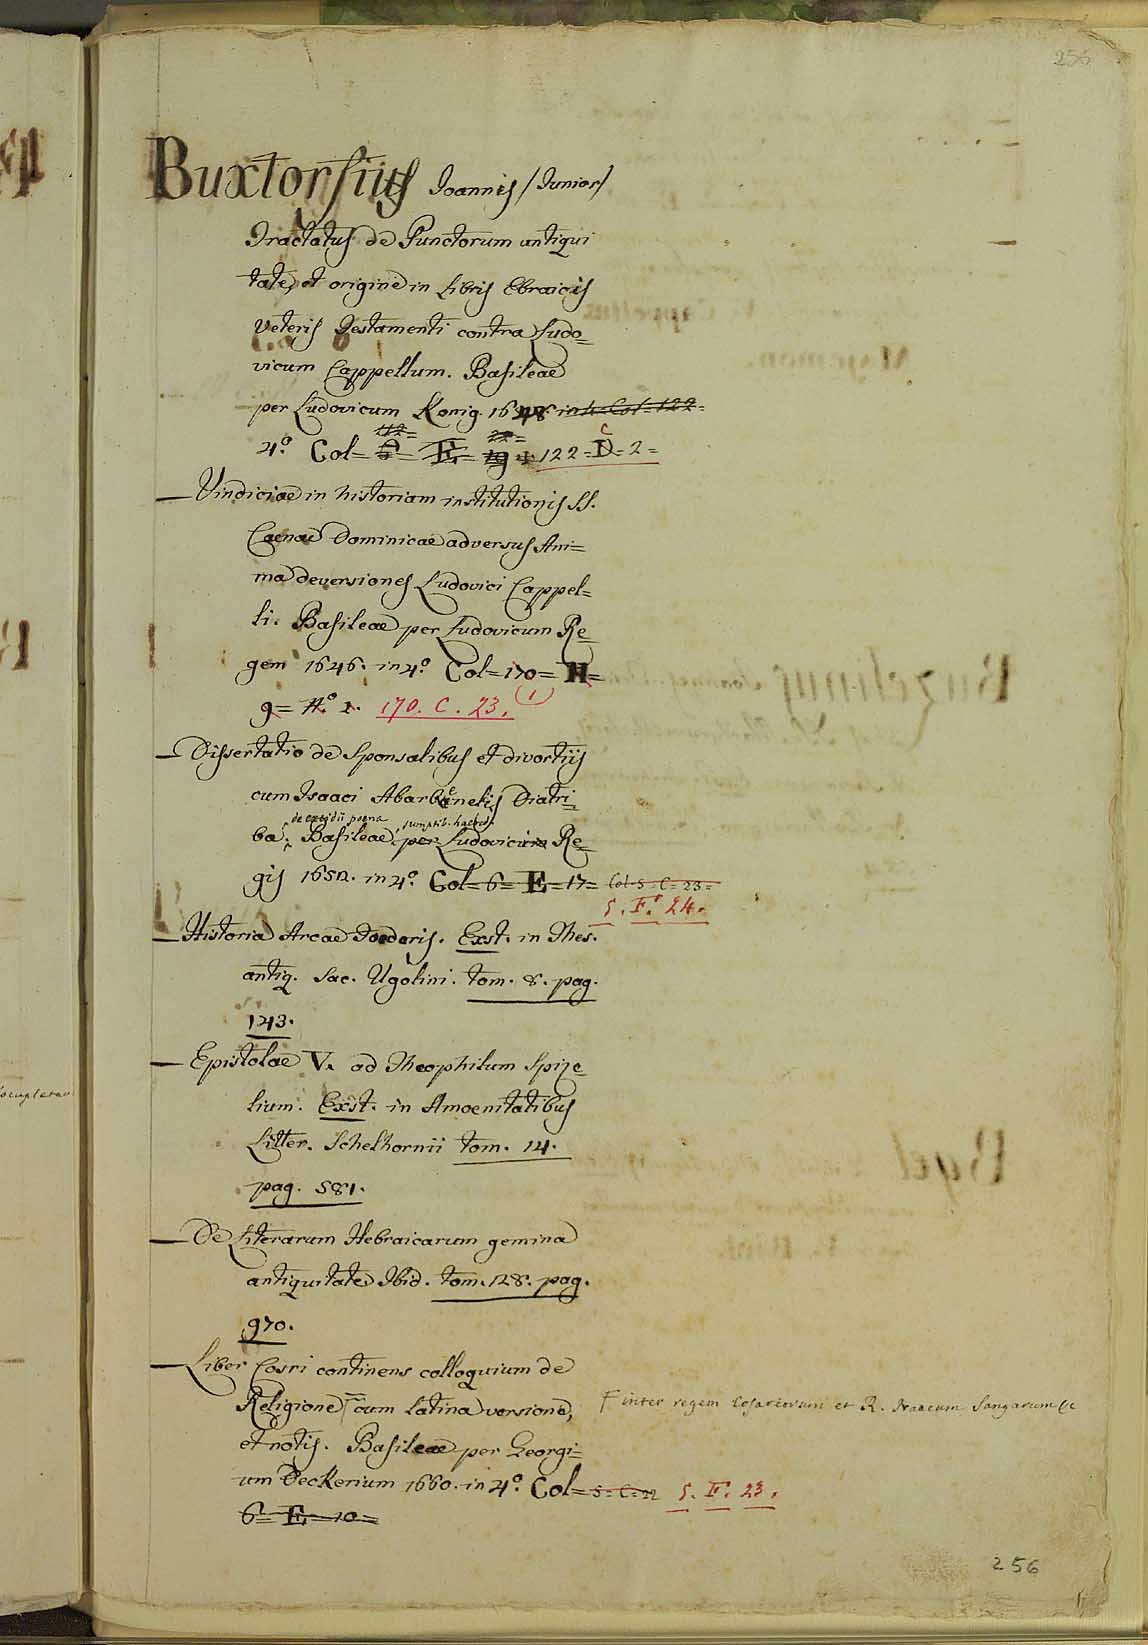 256
Buxtorfius Joannis /Junior/
Tractatus de Punctorum antiqui
tate, et origine in Libris Ebraicis
Veteris Testamenti contra Ludo=
vicum Cappellum. Basileae
per Ludovicum Konig. 1648. in 4. Col= 122=
4.° Col= E= 19 122=D=2=
C
— Vindiciae in historiam institutionis SS.
Caenae Dominicae adversus Ani=
madversiones Ludovici Cappel=
li. Basileae per Ludovicum Re=
gem 1646. in 4.° Col=170=H=
9= N.° 1. 170. C. 23. (1)
— Dissertatio de Sponsalibus et divortiis
cum Isaaci Abarbanelis Diatri=
de excidii poena sumptib. haered.
ba. Basileae per Ludovicum Re=
gis 1652. in 4.° Col=6=E=17= Col=5=C=23=
5. F. 24.
— Historia Arcae Foederis. Exst. in Thes.
antiq. Sac. Ugolini. tom. 8. pag.
143.
— Epistolae V. ad Theophilum Spize
lium. Exst. in Amoenitatibus
Litter. Schelhornii tom. 14.
pag. 581.
— De Literarum Hebraicarum gemina
antiquitate Ibid. tom. 28. pag.
970.
— Liber Cosri continens colloquium de
Religione cum latina versione, F inter regem Cosareorum et R. Isaacum Sangarum &c
et notis. Basileae per Georgi=
um Deckerium 1660. in 4.° Col= 5=C=22 5. F. 23.
6=E=10=
256